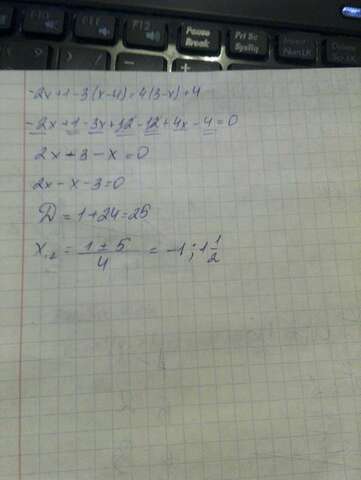 F10
F11
F12
Pause
Break
Prt Sc
SysRq
-2x+1-3(x-4)=4(3-x)+4
-2x+1-3x+12-12+4x-4=0
2x+3-x=0
2x-x-3=0
D=1+24=25
x₁,₂=(1±5)/4=-1; 1 1/2